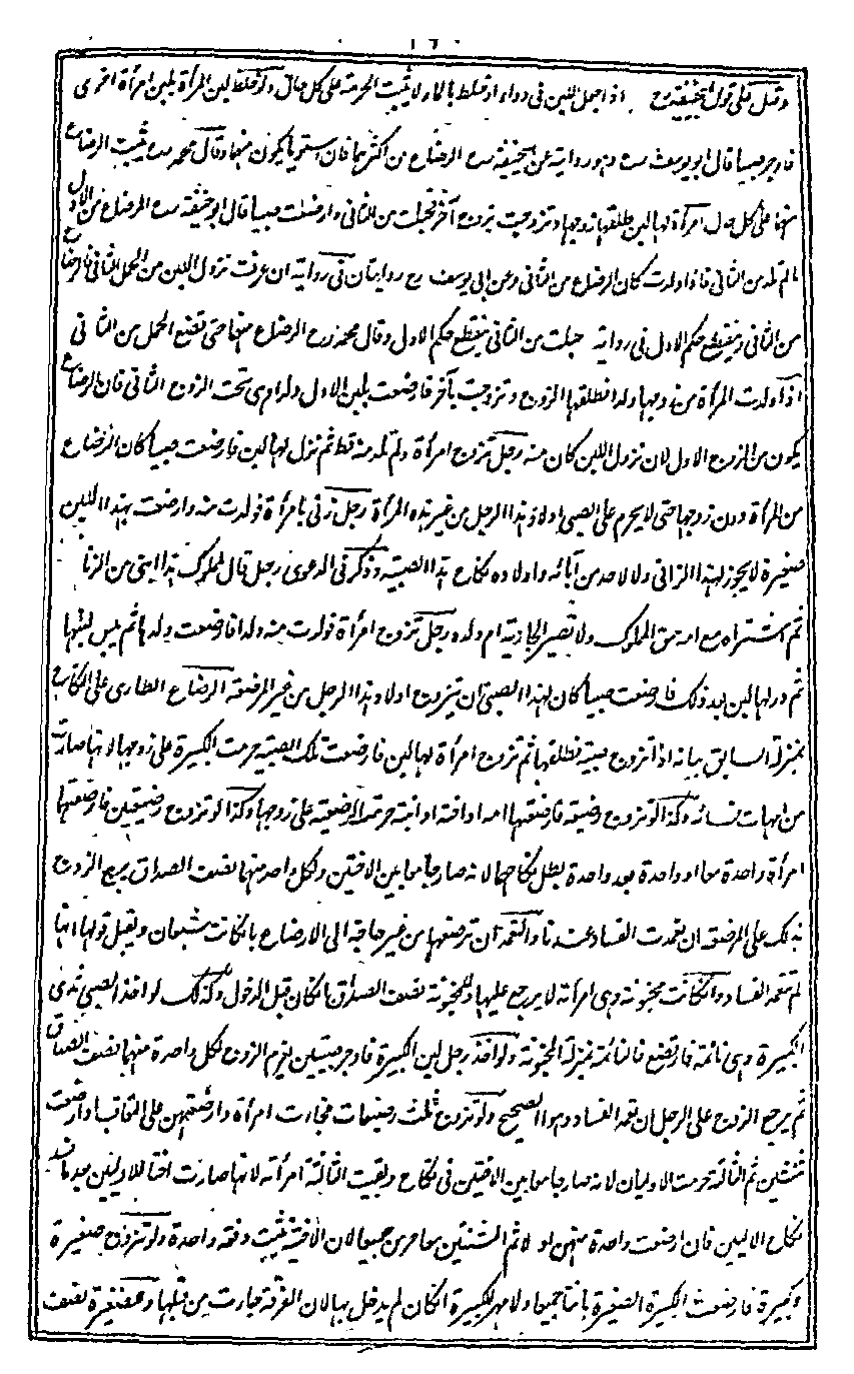 وقيل على قول ابيحنيفة رح اذا جعل اللبن فى دواء او خلط بالماء لا يثبت الحرمة على كل حال ولو خلط لبن المرأة بلبن امرأة اخرى
فاوجر صبيا قال ابو يوسف رح وهو رواية عن ابيحنيفة رح الرضاع من اكثرهما فان استويا يكون منهما وقال محمد رح يثبت الرضاع
منهما على كل حال امرأة لها لبن طلقها زوجها وتزوجت بزوج آخر فحبلت من الثانى وارضعت صبيا قال ابو حنيفة رح الرضاع من الاول
ما لم تلد من الثانى فاذا ولدت كان الرضاع من الثانى وعن ابى يوسف رح روايتان فى رواية ان عرفت نزول اللبن من الحمل الثانى فالرضاع
من الثانى وينقطع حكم الاول فى رواية حبلت من الثانى ينقطع حكم الاول وقال محمد رح الرضاع منهما حتى تضع الحمل من الثانى
اذا ولدت المرأة من زوجها ولدا فطلقها الزوج وتزوجت بآخر فارضعت بلبن الاول ولدا وهى تحت الزوج الثانى فان الرضاع
يكون من الزوج الاول لان نزول اللبن كان منه رجل تزوج امرأة ولم تلد منه قط ثم نزل لها لبن فارضعت صبيا كان الرضاع
من المرأة دون زوجها حتى لا يحرم على الصبى اولاد هذا الرجل من غير هذه المرأة رجل زنى بامرأة فولدت منه وارضعت بهذا اللبن
صغيرة لا يجوز لهذا الزانى ولا لاحد من آبائه واولاده نكاح هذا الصبية وذكر فى الدعوى رجل قال لمملوك هذا ابنى من الزنا
ثم اشتراه مع امه عتق المملوك ولا تصير الجارية ام ولده رجل تزوج امرأة فولدت منه ولدا فارضعت ولدها ثم يبس لبنها
ثم در لها لبن بعد ذلك فارضعت صبيا كان لهذا الصبى ان يتزوج اولاد هذا الرجل من غير المرضعة الرضاع الطارى على النكاح
بمنزلة السابق بيانه اذا تزوج صبية فطلقها ثم تزوج امرأة لها لبن فارضعت تلك الصبية حرمت الكبيرة على زوجها لانها صارت
من امهات نسائه وكذا لو تزوج رضيعة فارضعتها امه او اخته او ابنته حرمت الرضيعة على زوجها وكذا لو تزوج رضيعتين فارضعتهما
امرأة واحدة معا او واحدة بعد واحدة بطل نكاحهما لانه صار جامعا بين الاختين ولكل واحد منهما نصف الصداق يرجع الزوج
بذلك على المرضعة ان تعمدت الفساد عندنا والتعمد ان ترضعهما من غير حاجة الى الارضاع بان كانت شبعان ويقبل قولها انها
لم تتعمد الفساد وان كانت مجنونة وهى امرأته لا يرجع عليها وللمجنونة نصف الصداق ان كان قبل الدخول وكذلك لو اخذ الصبى ثدى
الكبيرة وهى نائمة فارتضع فالنائمة بمنزلة المجنونة ولو اخذ رجل لبن الكبيرة فاوجر صبيتين يلزم الزوج لكل واحدة منهما نصف الصداق
ثم يرجع الزوج على الرجل ان تعمد الفساد وهو الصحيح ولو تزوج ثلث رضيعات فجاءت امرأة وارضعتهن على التعاقب او ارضعت
ثنتين ثم الثالثة حرمت الاوليان لانه صار جامعا بين الاختين فى نكاح وبقيت الثالثة امرأته لانها صارت اختا للاوليين بعد ما فسد
نكاح الاوليين فان ارضعت واحدة منهن اولا ثم الثنتين معا حرمن جميعا لان الاختية يثبت دفعة واحدة ولو تزوج صغيرة
وكبيرة فارضعت الكبيرة الصغيرة بانتا جميعا ولا مهر للكبيرة ان كان لم يدخل بها لان الفرقة جاءت من قبلها وللصغيرة نصف